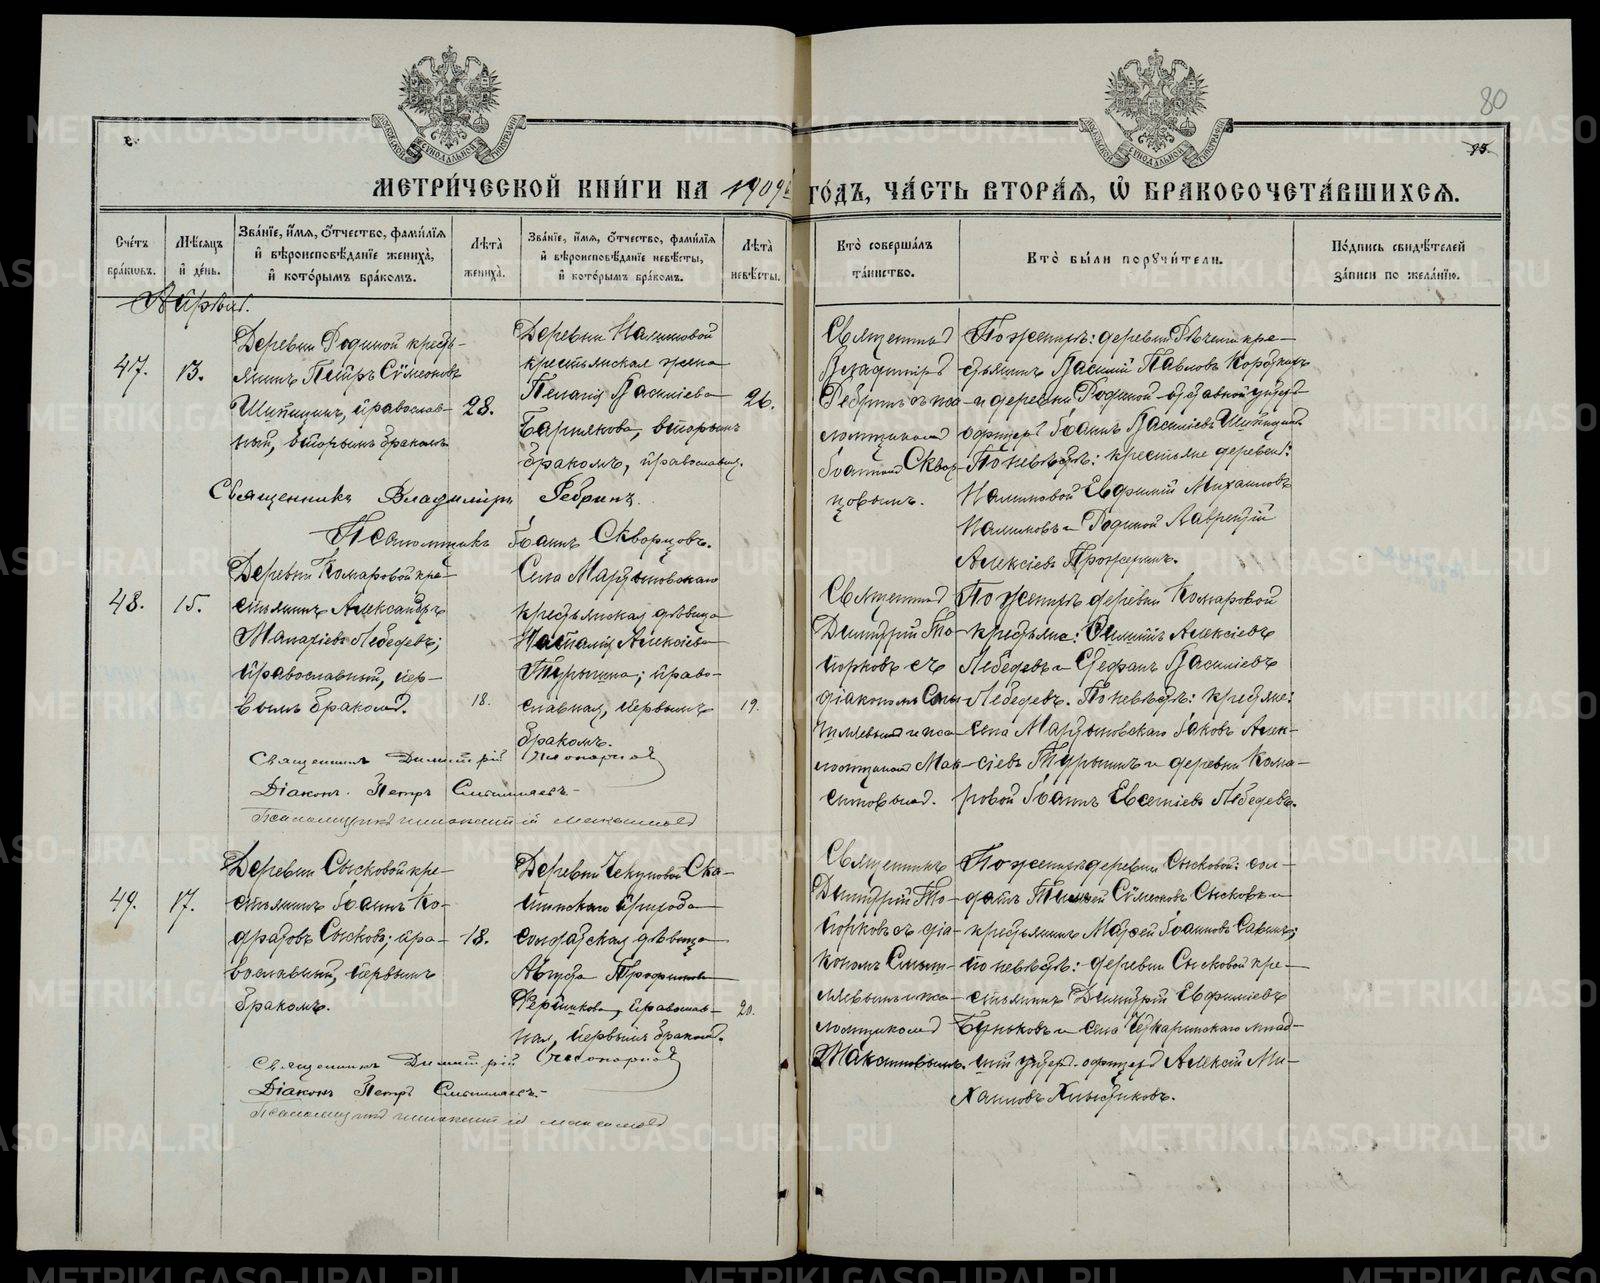 80
МОСКОВСКОЙ СѴНОДАЛЬНОЙ ТИПОГРАФІИ
МОСКОВСКОЙ СѴНОДАЛЬНОЙ ТИПОГРАФІИ
МЕТРИ́ЧЕСКОЙ КНИ́ГИ НА 1909й ГО́ДЪ, ЧА́СТЬ ВТОРА́Ѧ, Ѽ БРАКОСОЧЕТА́ВШИХСѦ.
Сче́тъ бра́кѡвъ.
Мѣ́сяцъ и҆ де́нь.
Зва́нїе, и҆́мѧ, ѻ҆́тчество, фами́лїѧ и҆ вѣроисповѣ́данїе жениха̀, и҆ кото́рымъ бра́комъ.
Лѣта̀ жениха̀.
Зва́нїе, и҆́мѧ, ѻ҆́тчество, фами́лїѧ и҆ вѣроисповѣ́данїе невѣ́сты, и҆ кото́рымъ бра́комъ.
Лѣта̀ невѣ́сты.
Кто̀ соверша́лъ та́инство.
Кто̀ бы́ли порꙋчи́тели.
По́дпись свидѣ́телей за́писи по жела́нїю.
Апрѣль.
47.
13.
Деревни Родиной кресть-
янинъ Петръ Сѵмеоновъ
Шипицинъ, православ-
ный, вторымъ бракомъ
28.
Деревни Налимовой
крестьянская жена
Пелагія Василіева
вторымъ
бракомъ, православн.
26.
Священникъ
Владиміръ
Ребринъ съ пса-
ломщикомъ
Іоанномъ Сквор-
цовымъ.
По женихѣ: деревни кре-
стьянинъ Василій Павловъ
и деревни Родиной отставной унтеръ-
офицеръ Іоаннъ Василіевъ Шипицинъ.
По невѣстѣ: крестьяне деревень:
Налимовой Евфимій Михаиловъ
Налимовъ и Родиной Лаврентій
Алексіевъ
Священникъ Владиміръ Ребринъ.
Псаломщикъ Іоаннъ Скворцовъ.
48.
15.
Деревни Комаровой кре-
стьянинъ Александръ
Малахіевъ Лебедевъ;
православный, пер-
вымъ бракомъ.
18.
Села Мартыновскаго
крестьянская дѣвица
Наталія Алексіева
Турыгина; право-
славная, первымъ
бракомъ.
19.
Священникъ
Димитрій То-
порковъ съ
діакономъ Смы-
шляевымъ и пса-
ломщикомъ Мак-
симовымъ.
По женихѣ деревни Комаровой
крестьяне: Алексіевъ
Лебедевъ и Стефанъ Василіевъ
Лебедевъ. По невѣстѣ: крестьяне:
села Мартыновскаго Іаковъ Алек-
сіевъ Турыгинъ и деревни Кома-
ровой Іоаннъ Евсетиевъ Лебедевъ.
Священникъ Димитрій Топорковъ
Діаконъ Петръ Смышляевъ.
Псаломщикъ Иннокентій Максимовъ
49.
17.
Деревни Сысковой кре-
стьянинъ Іоаннъ Ко-
дратовъ Сысковъ; пра-
вославный, первымъ
бракомъ.
18.
Деревни Чекуновой Ска-
тинскаго прихода
солдатская дѣвица
Августа Трофимова
православ-
ная, первымъ бракомъ.
20.
Священникъ
Димитрій То-
порковъ съ діа-
кономъ Смыш-
ляевымъ и пса-
ломщикомъ
Максимовымъ.
По женихѣ деревни Сысковой: сол-
датъ Сѵмеоновъ Сысковъ и
крестьянинъ Матѳей Іоанновъ Савинъ;
по невѣстѣ: деревни Сысковой кре-
стьянинъ Димитрій Евфиміевъ
Буньковъ и села Четкаринскаго млад-
шій унтеръ-офицеръ Алексій Ми-
хаиловъ Хлыстиковъ.
Священникъ Димитрій Топорковъ
Діаконъ Петръ Смышляевъ.
Псаломщикъ Иннокентій Максимовъ
METRIKI.GASO-URAL.RU